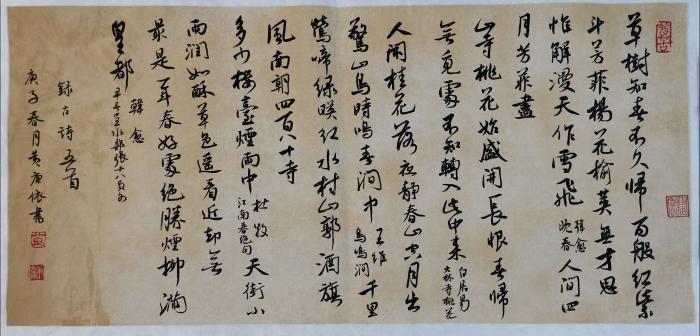 草樹知春不久歸百般紅紫
斗芳菲楊花榆莢無才思
惟解漫天作雪飛 韓愈 晚春 人间四
月芳菲盡
山寺桃花始盛開長恨春歸
無覓處不知轉入此中来 白居易 大林寺桃花
人閑桂花落夜靜春山空月出
驚山鳥時鳴春澗中 王維 鳥鳴澗 千里
鶯啼綠映紅水村山郭酒旗
風南朝四百八十寺
多少樓臺煙雨中 杜牧 江南春絕句 天街小
雨潤如酥草色遥看近却無
最是一年春好處絕勝煙柳滿
皇都 韓愈 早春呈水部張十八員外
錄古詩五首
庚子春月黄 書